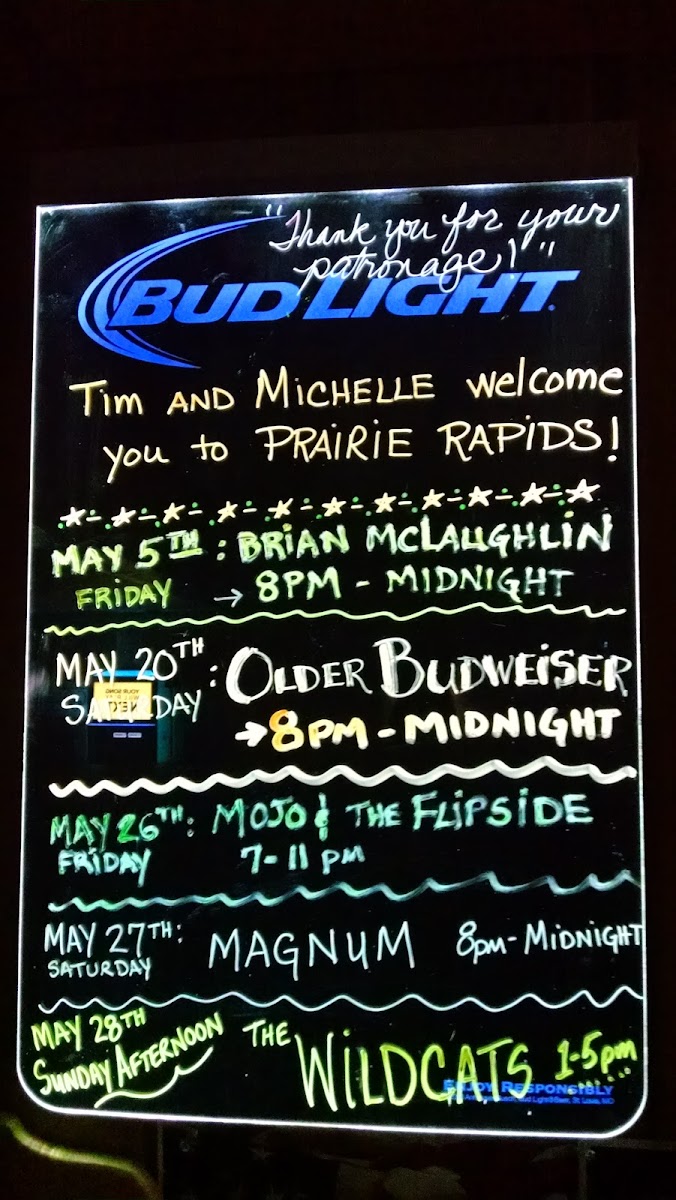 "Thank you for your
patronage!"
BUD LIGHT
Tim AND MICHELLE welcome
you to PRAIRIE RAPIDS!
MAY 5TH : BRIAN MCLAUGHLIN
FRIDAY → 8PM - MIDNIGHT
MAY 20TH : OLDER BUDWEISER
SATURDAY → 8PM - MIDNIGHT
MAY 26TH: MOJO & THE FLIPSIDE
FRIDAY 7-11 pm
MAY 27TH: MAGNUM 8pm-MIDNIGHT
SATURDAY
MAY 28TH THE WILDCATS 1-5pm
SUNDAY AFTERNOON
ENJOY RESPONSIBLY